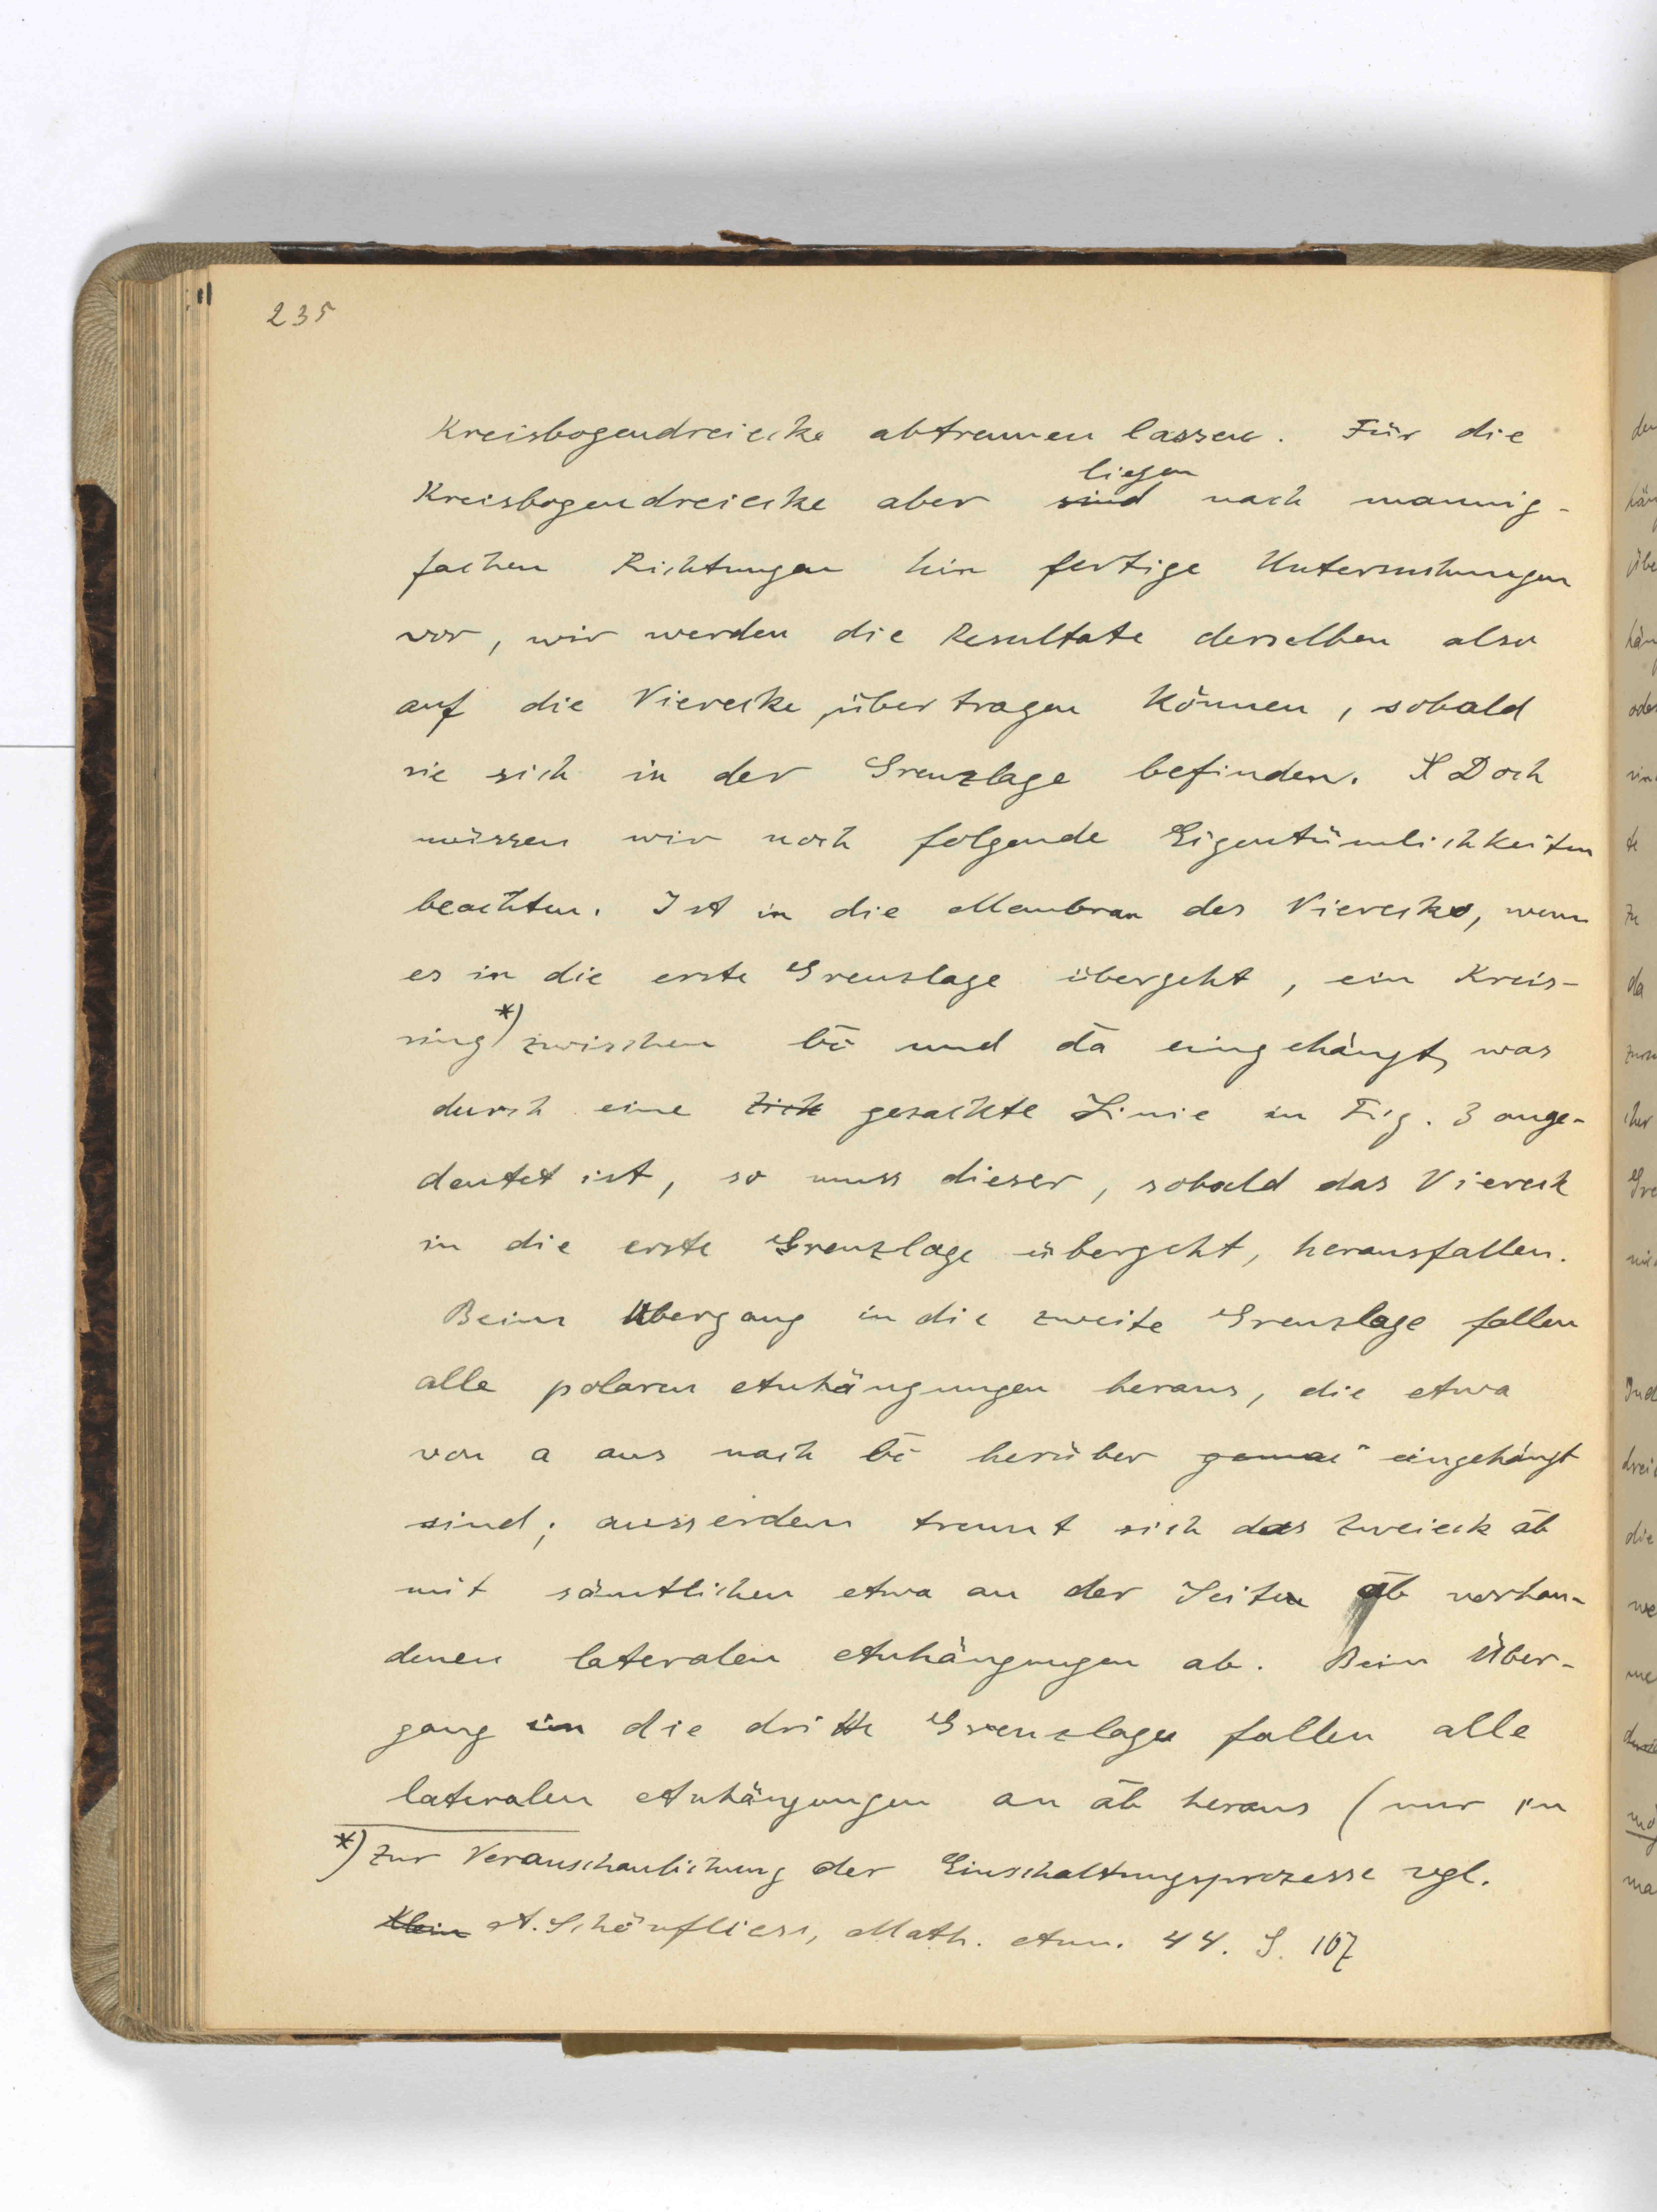 235
Kreisbogendreiecke abtrennen lassen. Für die
liegen
Kreisbogendreiecke aber sind nach mannig-
fachen Richtungen hin fertige Untersuchungen
vor, wir werden die Resultate derselben also
auf die Vierecke übertragen können, sobald
sie sich in der Grenzlage befinden. Doch
müssen wir noch folgende Eigentümlichkeiten
beachten. Ist in die Membran des Vierecks, wenn
es in die erste Grenzlage übergeht, ein Kreis-
ring*) zwischen b̄c̄ und d̄ā eingehängt, was
durch eine zick gezackte Linie in Fig. 3 ange-
deutet ist, so muss dieser, sobald das Viereck
in die erste Grenzlage übergeht, herausfallen.
Beim Übergang in die zweite Grenzlage fallen
alle polaren Anhängungen heraus, die etwa
von a aus nach b̄c̄ herüber eingehängt
sind; ausserdem trennt sich das Zweieck āb̄
mit sämtlichen etwa an der Seite āb̄ vorhan-
denen lateralen Anhängungen ab. Beim Über-
gang in die dritte Grenzlage fallen alle
lateralen Anhängungen an āb̄ heraus (nur in
*) Zur Veranschaulichung der Einschaltungsprozesse vgl.
Klein A. Schönfliess, Math. Ann. 44. S. 107